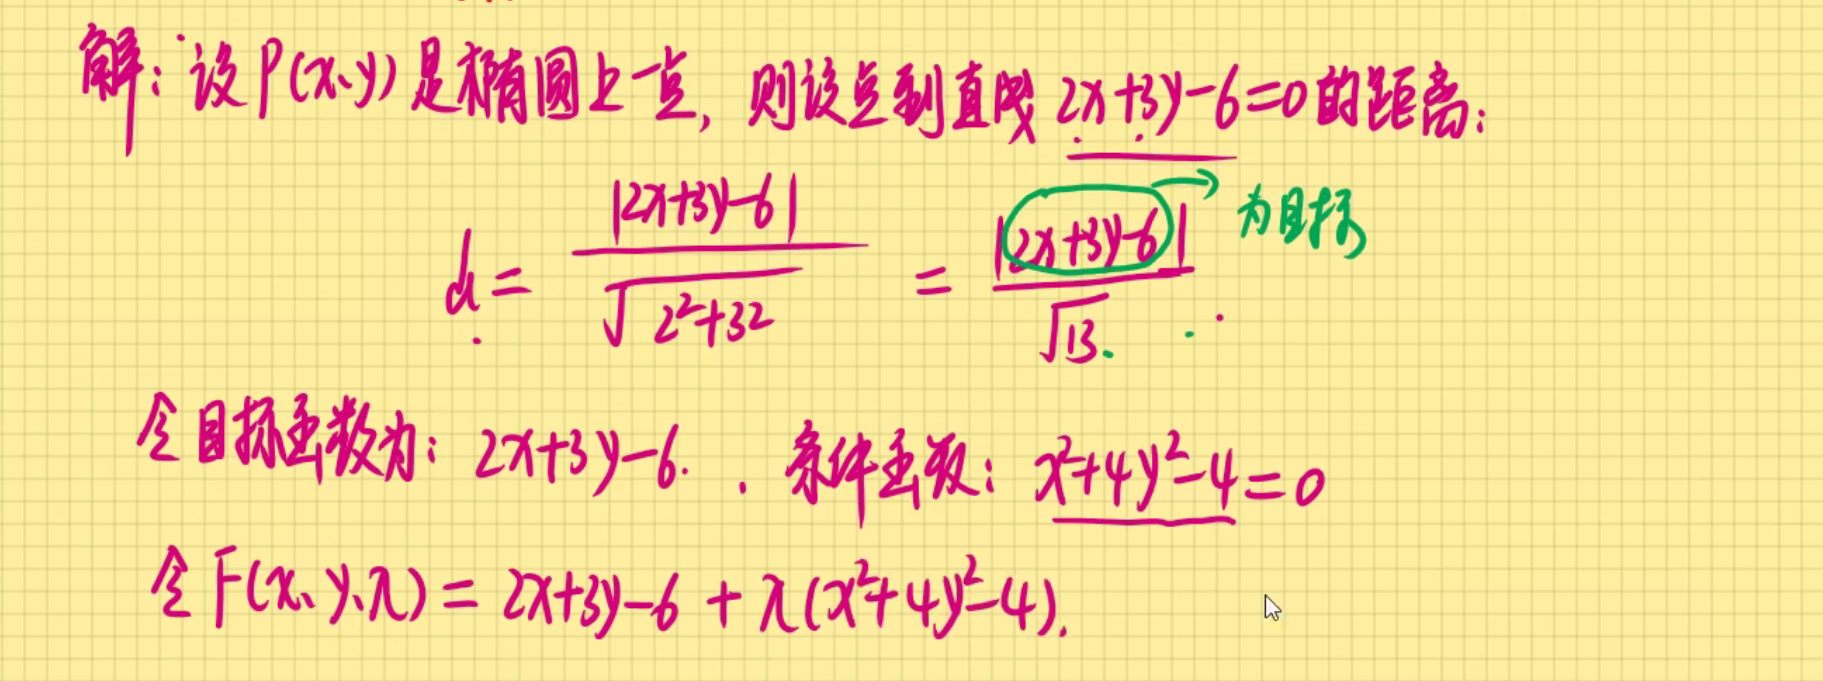 解：设P(x、y)是椭圆上一点，则该点到直线2x+3y-6=0的距离：
d = |2x+3y-6| / √(2²+3²) = |2x+3y-6| / √13 . → 为目标
令目标函数为：2x+3y-6. 条件函数：x²+4y²-4=0
令F(x、y、λ) = 2x+3y-6 + λ(x²+4y²-4).